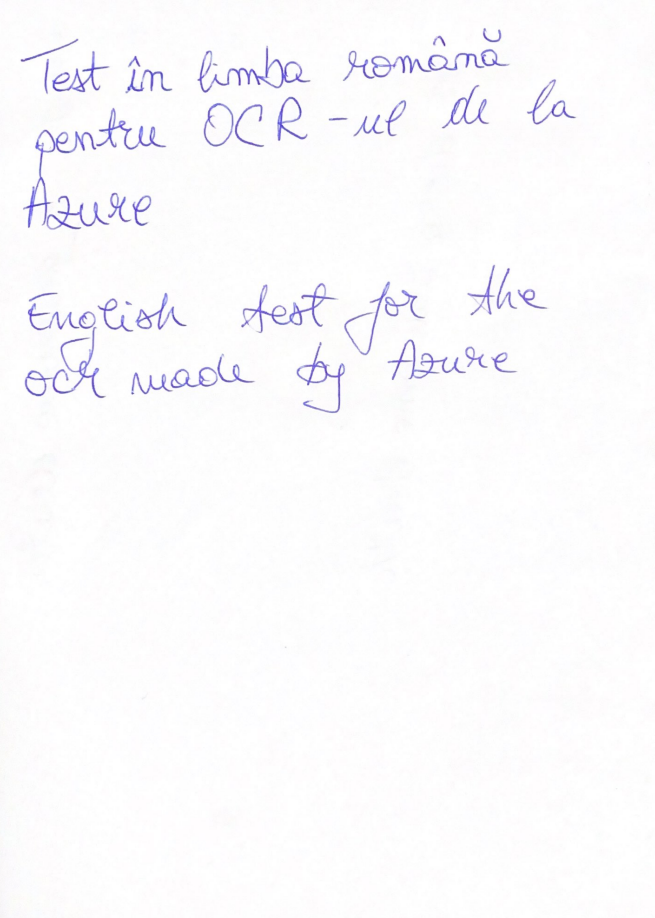 Test în limba română
pentru OCR-ul de la
Azure
English test for the
ocr made by Azure